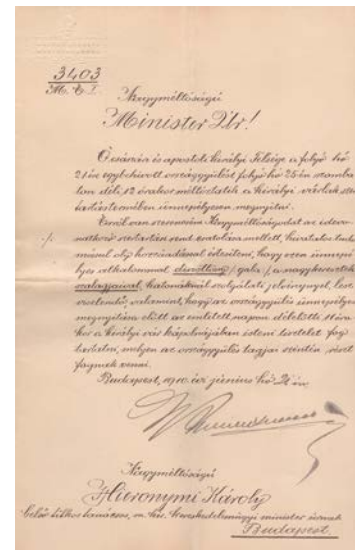 3403
M. E. I.
Nagyméltóságú
Minister Úr!
Ő császári és apostoli királyi Felsége a folyó hó
21 ére egybehívott országgyűlést folyó hó 25 én szomba
ton déli 12 órakor méltóztatik a királyi várlak szer
tartástermében ünnepélyesen megnyitni.
Erről van szerencsém Nagyméltóságodat az idevo
natkozó szertartási rend csatolása mellett, hivatalos tudo
másul oly hozzáadással értesíteni, hogy ezen ünnepé
lyes alkalommal díszöltöny /:gala:/ a nagykeresztek
szalagjaival, katonáknál szolgálati jelvénynyel, lesz
viselendő, valamint, hogy az országgyűlés ünnepélyes
megnyitása előtt az említett napon délelőtt 11 óra
kor a királyi vár kápolnájában isteni tisztelet fog
tartatni, melyen az országgyűlés tagjai szintén részt
fognak venni.
Budapest, 1910. évi június hó 21 én
Nagyméltóságú
Hieronymi Károly
belső titkos tanácsos, m. kir. kereskedelemügyi minister úrnak
Budapest.